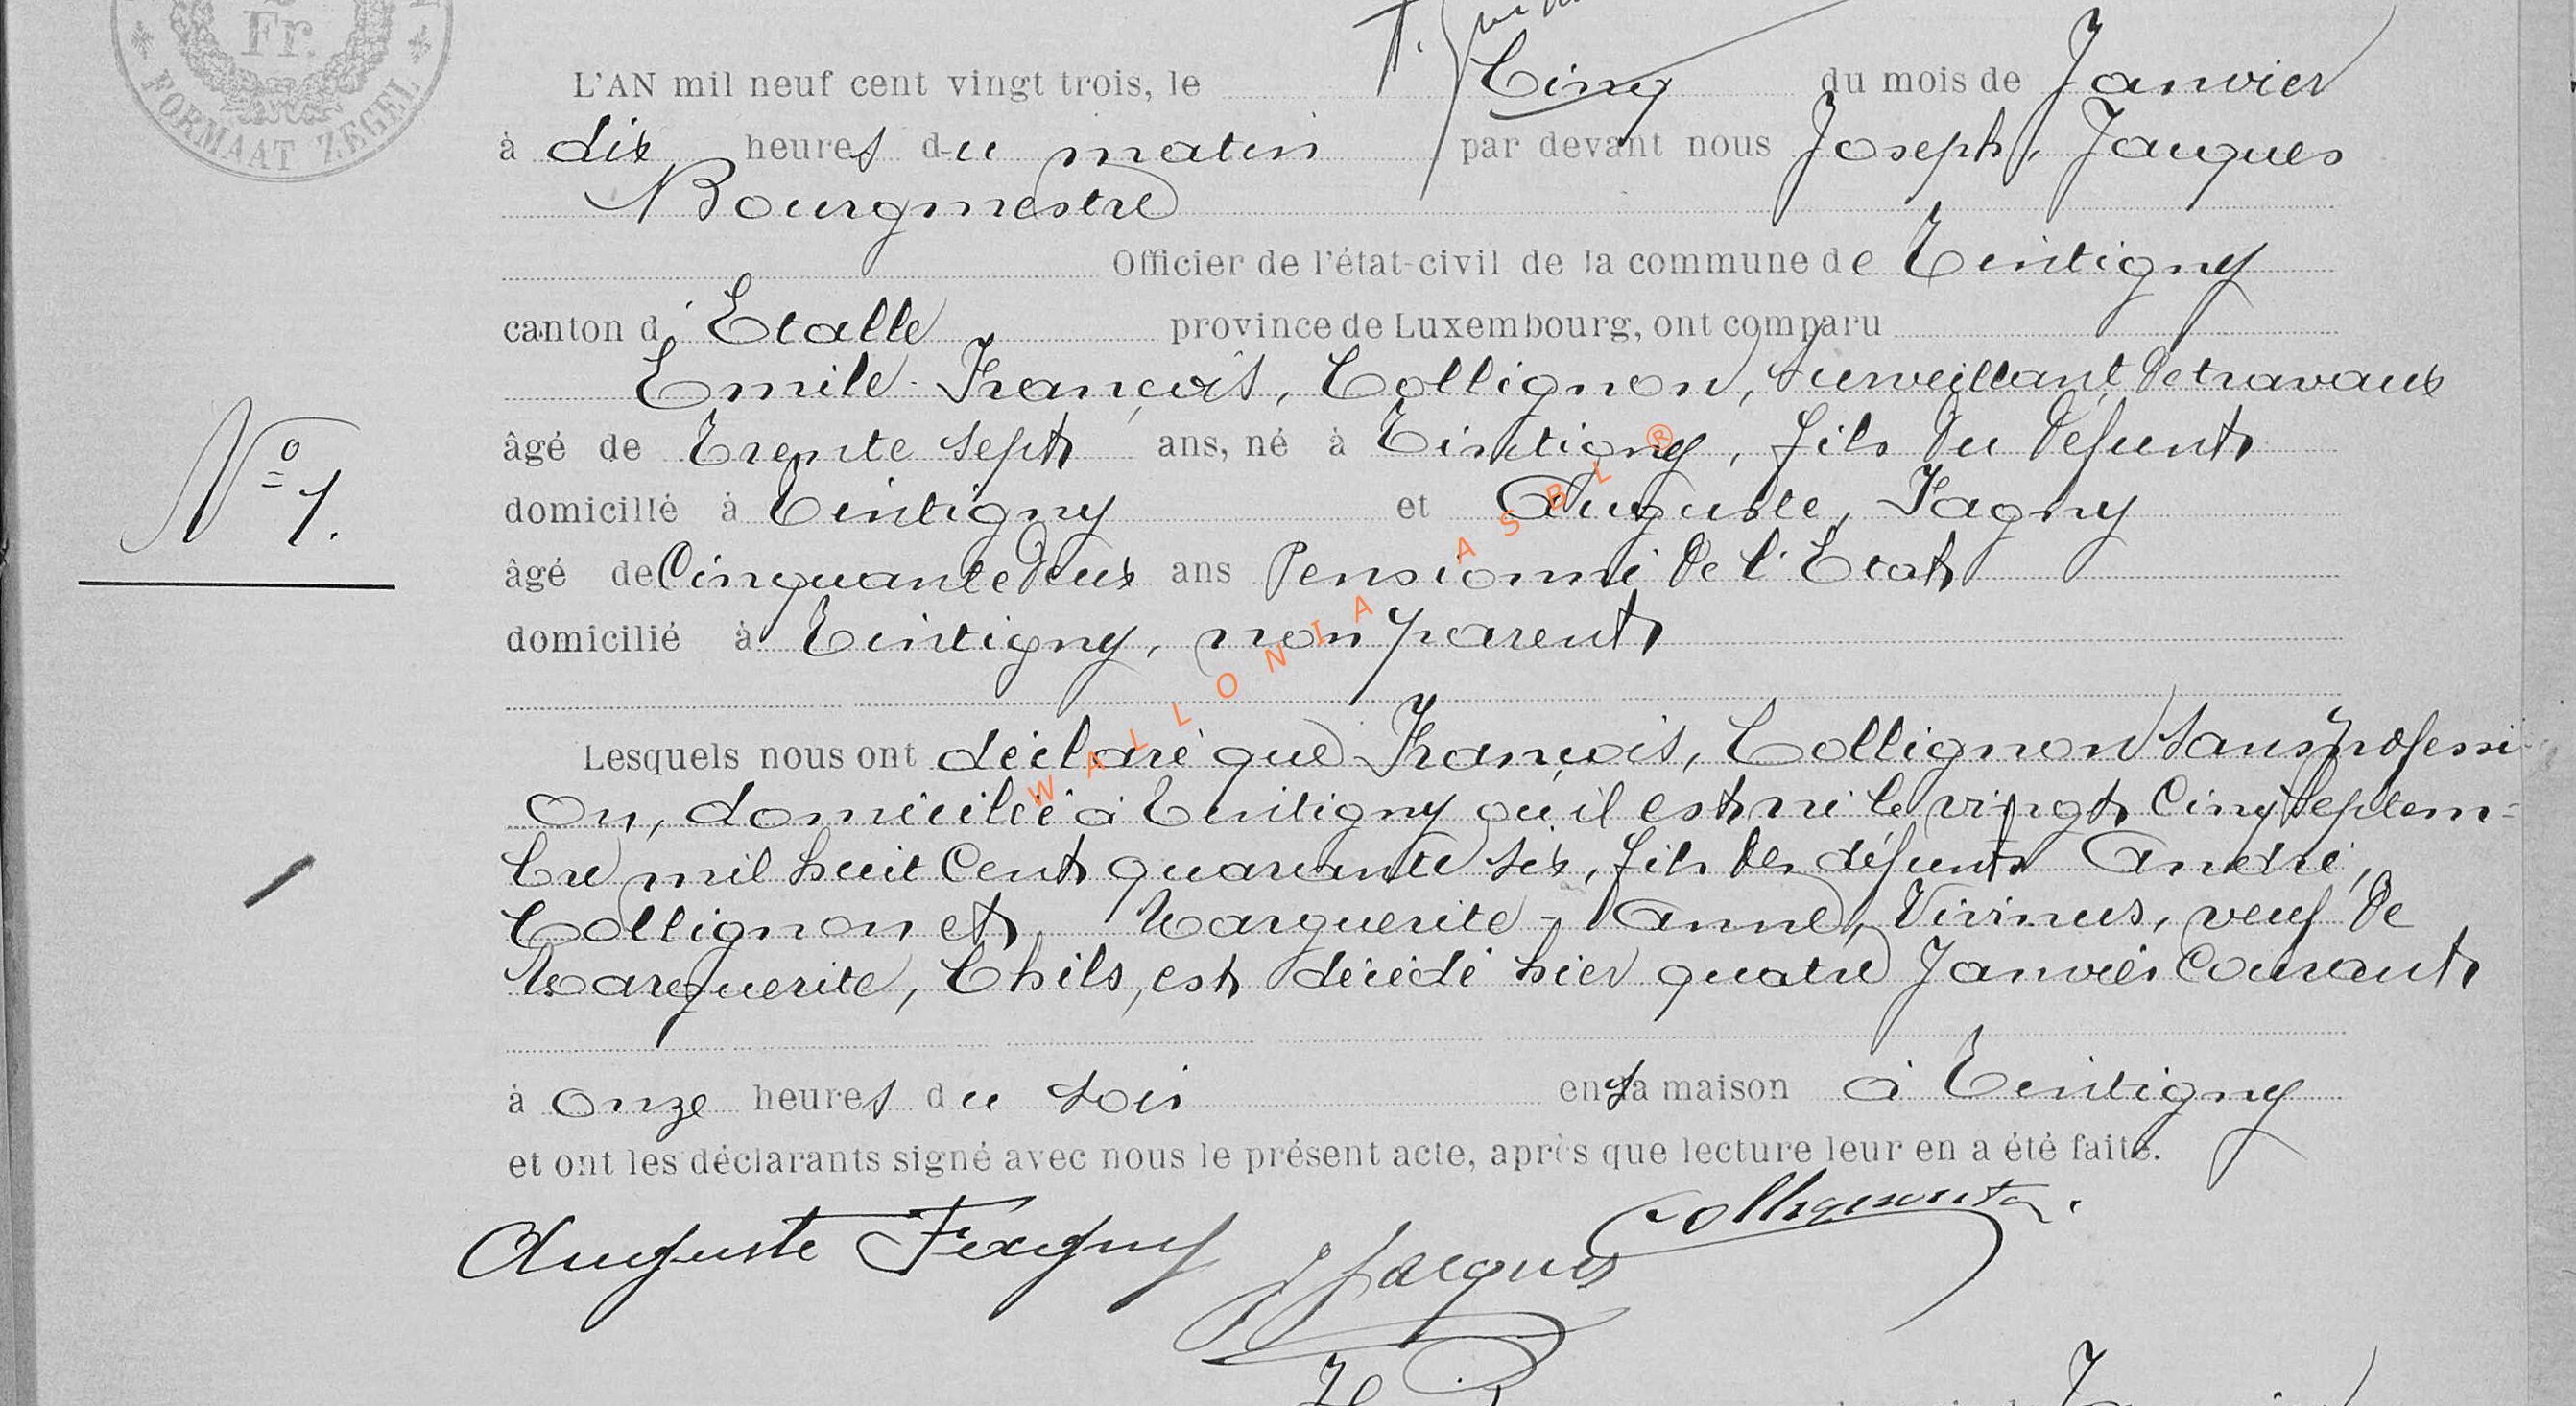 Fr.
FORMAAT ZEGEL
L'AN mil neuf cent vingt trois, le Cinq du mois de Janvier
à dix heures du matin par devant nous Joseph, Jacques
Bourgmestre
Officier de l'état-civil de la commune de Tintigny
canton d'Etalle province de Luxembourg, ont comparu
Emile-François, Collignon, Surveillant de travaux
âgé de Trente sept ans, né à Tintigny, fils du défunt
domicilié à Tintigny et Auguste, Fagny
âgé de Cinquante deux ans Pensionné de l'Etat
domicilié à Tintigny, non parent
Lesquels nous ont déclaré que François, Collignon Sans professi-
on, domicilié à Tintigny où il est né le vingt Cinq Septem-
bre mil huit Cent quarante six, fils des défunts André,
Collignon et Marguerite-Anne, Virinus, veuf de
Marguerite, Thils, est décédé hier quatre Janvier Courant
à onze heures du soir en sa maison à Tintigny
et ont les déclarants signé avec nous le présent acte, après que lecture leur en a été faite.
N° 1.
Auguste Fagny J Jacques
WALLONIA ASBL ®